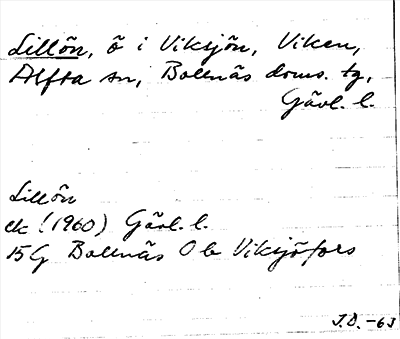 Lillön, ö i Viksjön, Viken,
Alfta sn, Bollnäs doms. tg,
Gävl. l.
Lillön
ek! (1960) Gävl. l.
15G Bollnäs 0b Viksjöfors
J.D. -63